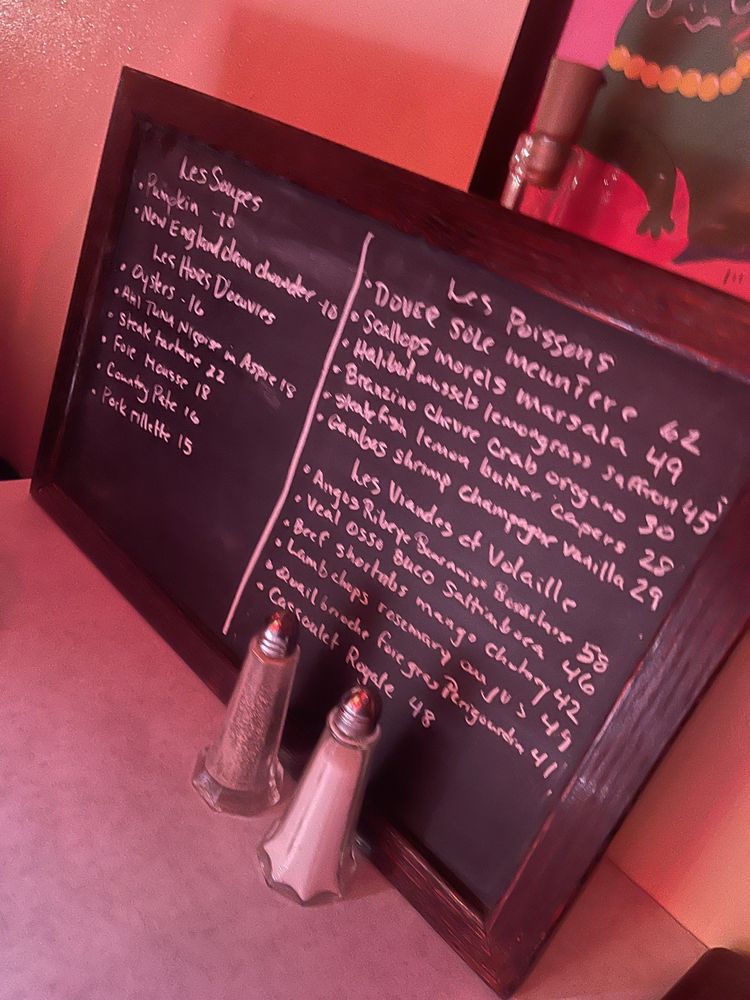 Les Soupes
• Pumpkin - 10
• New England clam chowder - 10
Les Hors D'oeuvres
• Oysters - 16
• Ahi Tuna Niçoise in Aspic 18
• Steak tartare 22
• Foie Mousse 18
• Country Pate 16
• Pork rillette 15
Les Poissons
• Dover Sole meunière 62
• Scallops morels marsala 49
• Halibut mussels lemongrass saffron 45
• Branzino chevre crab origano 30
• skate fish lemon butter capers 28
• Gambas shrimp champagne vanilla 29
Les Viandes et Volaille
• Angus Ribeye Bordelaise 58
• Veal Osso Buco Saltimboca 46
• Beef shortribs mango chutney 42
• Lamb chops rosemary au jus 49
• Quail brioche foie gras Perigourdin 41
• Cassoulet Royale 48